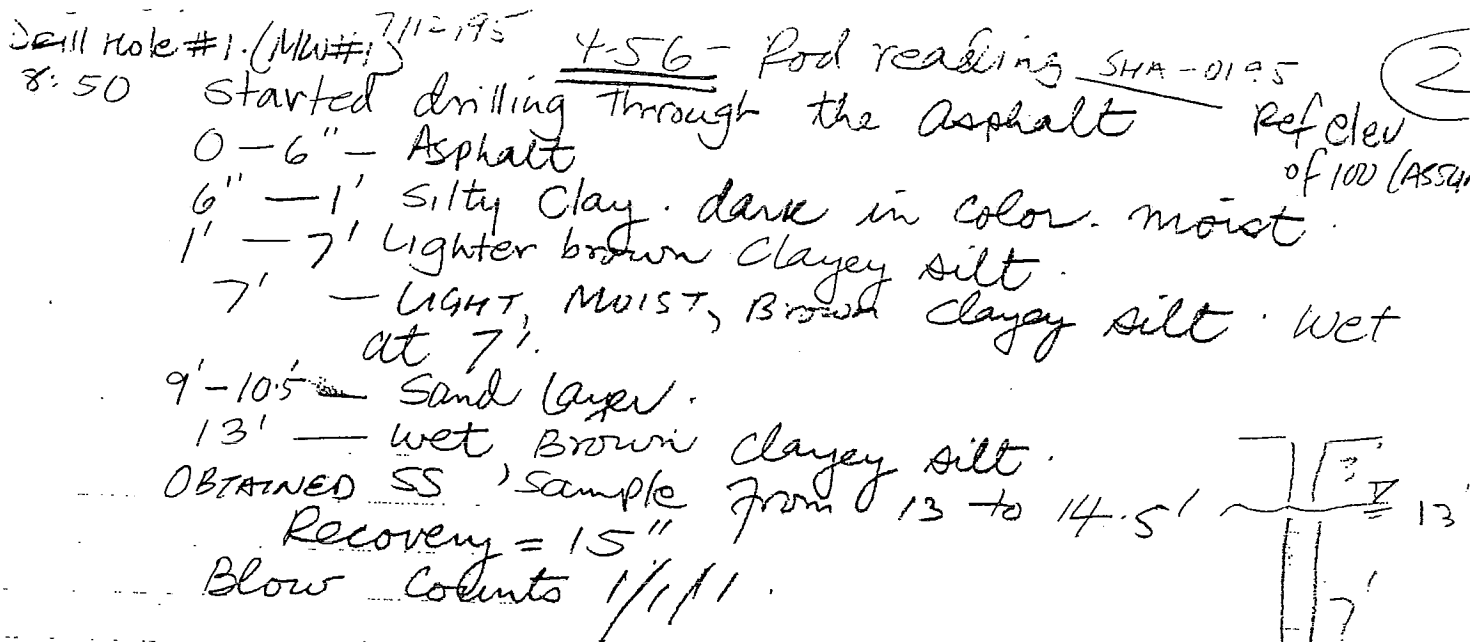 Drill Hole #1. (MW#1) 7/12/95 4.56 - Rod reading SHA-0195 2
8:50 Started drilling through the Asphalt Ref elev
of 100 (ASSUM
0 - 6" - Asphalt
6" - 1' Silty Clay. dark in color. moist.
1' - 7' Lighter brown Clayey silt.
7' - LIGHT, MOIST, Brown clayey silt. wet
at 7'.
9'-10.5 - Sand layer.
13' - wet Brown clayey silt.
OBTAINED SS Sample from 13 to 14.5' 3' 13'
Recovery = 15"
Blow Counts 1/1/1. 7'